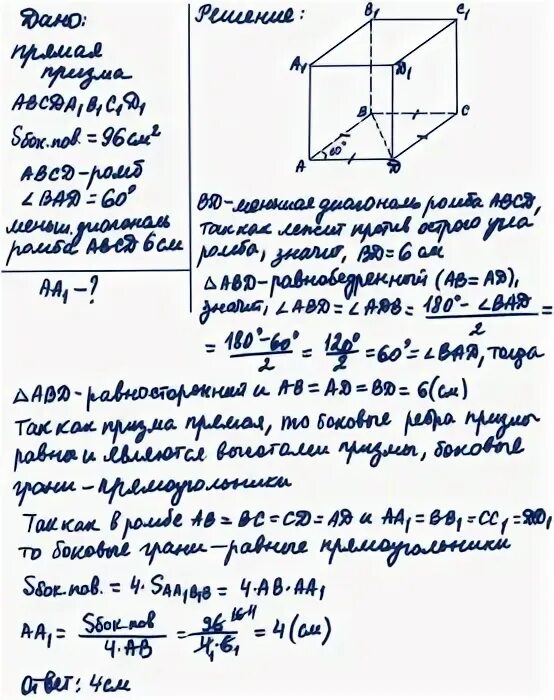 Дано:
прямая
призма
ABCDA₁B₁C₁D₁
Sбок.пов. = 96 см²
ABCD-ромб
∠BAD = 60°
меньш. диагональ
ромба ABCD 6 см
AA₁ - ?
Решение:
B₁ C₁
A₁ D₁
B C
60°
A D
BD-меньшая диагональ ромба ABCD,
так как лежит против острого угла
ромба, значит, BD = 6 см
△ABD-равнобедренный (AB = AD),
значит, ∠ABD = ∠ADB = (180° - ∠BAD)/2 =
= (180° - 60°)/2 = 120°/2 = 60° = ∠BAD, тогда
△ABD-равносторонний и AB = AD = BD = 6 (см)
Так как призма прямая, то боковые ребра призмы
равны и являются высотами призмы, боковые
грани - прямоугольники
Так как в ромбе AB = BC = CD = AD и AA₁ = BB₁ = CC₁ = DD₁,
то боковые грани - равные прямоугольники
Sбок.пов. = 4·S AA₁B₁B = 4·AB·AA₁
AA₁ = Sбок.пов/(4·AB) = 96 16 4/(4₁·6₁) = 4 (см)
Ответ: 4 см